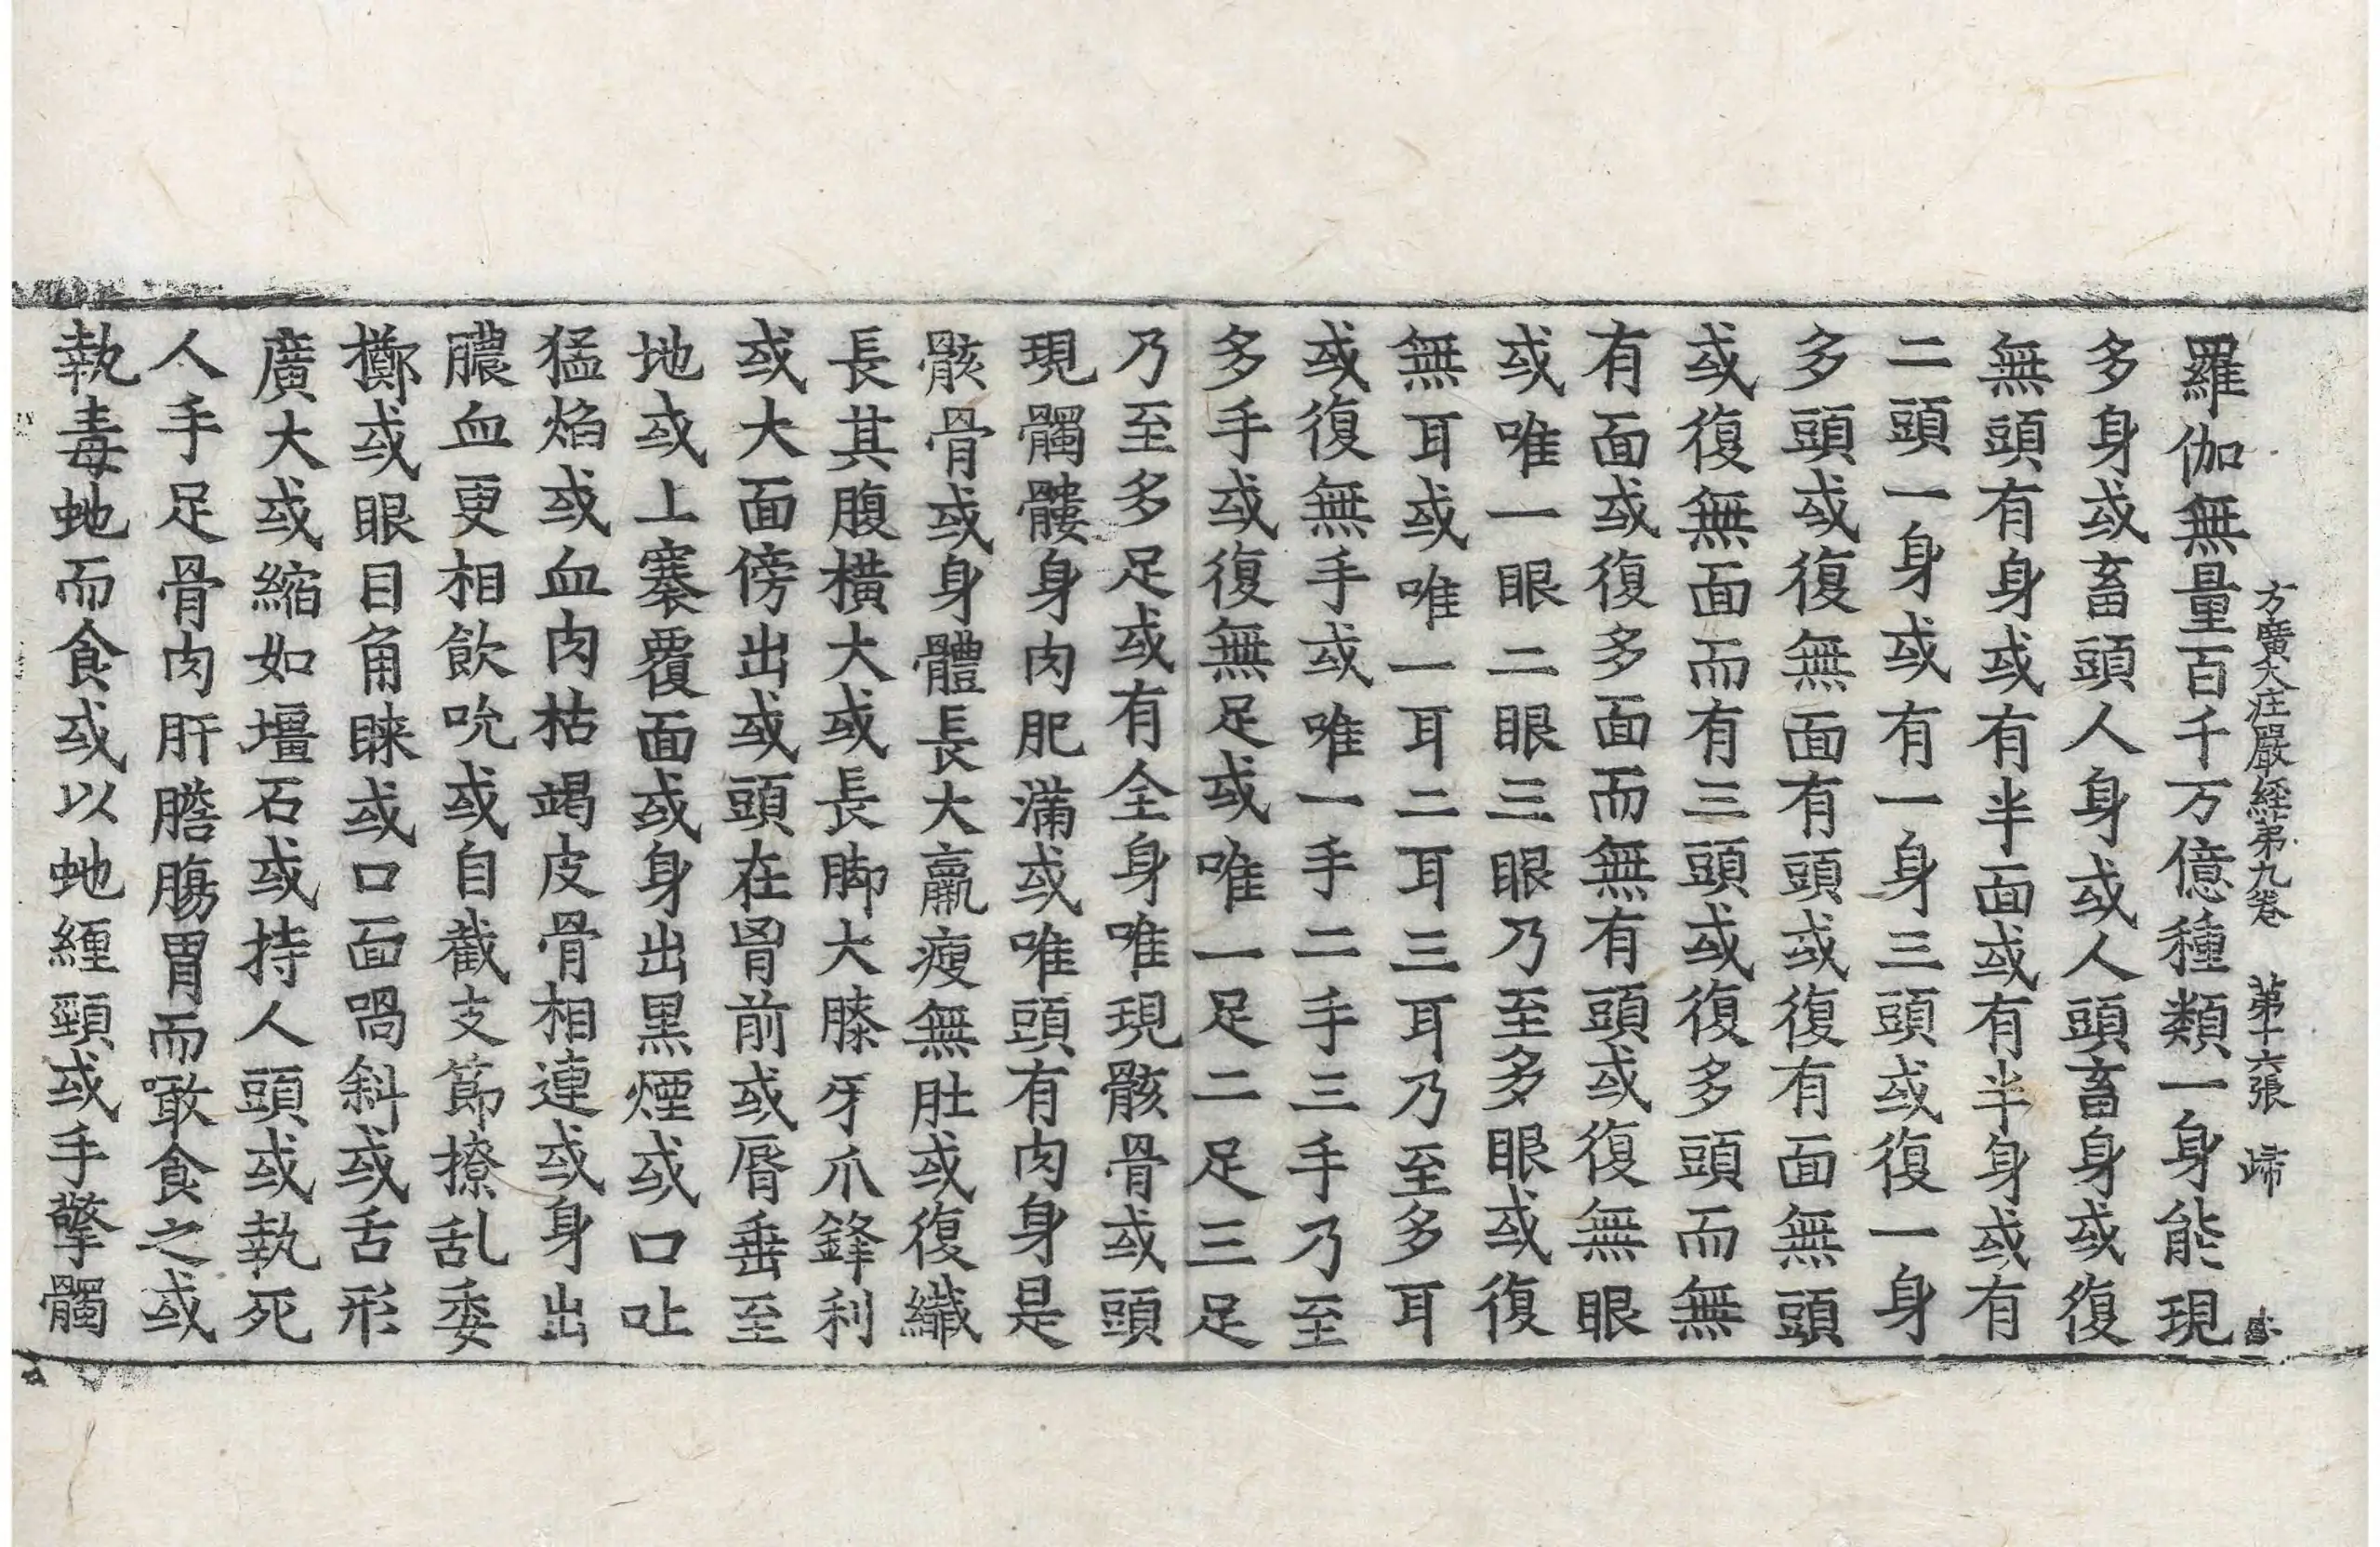 方廣大庄嚴經第九卷　第十六張　歸
羅伽無量百千万億種類一身能現
多身或畜頭人身或人頭畜身或復
無頭有身或有半面或有半身或有
二頭一身或有一身三頭或復一身
多頭或復無面有頭或復有面無頭
或復無面而有三頭或復多頭而無
有面或復多面而無有頭或復無眼
或唯一眼二眼三眼乃至多眼或復
無耳或唯一耳二耳三耳乃至多耳
或復無手或唯一手二手三手乃至
多手或復無足或唯一足二足三足
乃至多足或有全身唯現骸骨或頭
現髑髏身肉肥滿或唯頭有肉身是
骸骨或身體長大羸瘦無肚或復纖
長其腹橫大或長脚大膝牙爪鋒利
或大面傍出或頭在胷前或脣垂至
地或上褰覆面或身出黑煙或口吐
猛焰或血肉枯竭皮骨相連或身出
膿血更相飮吮或自截支節撩乱委
擲或眼目角睞或口面喎斜或舌形
廣大或縮如壃石或持人頭或執死
人手足骨肉肝膽腸胃而噉食之或
執毒虵而食或以虵纏頸或手擎髑